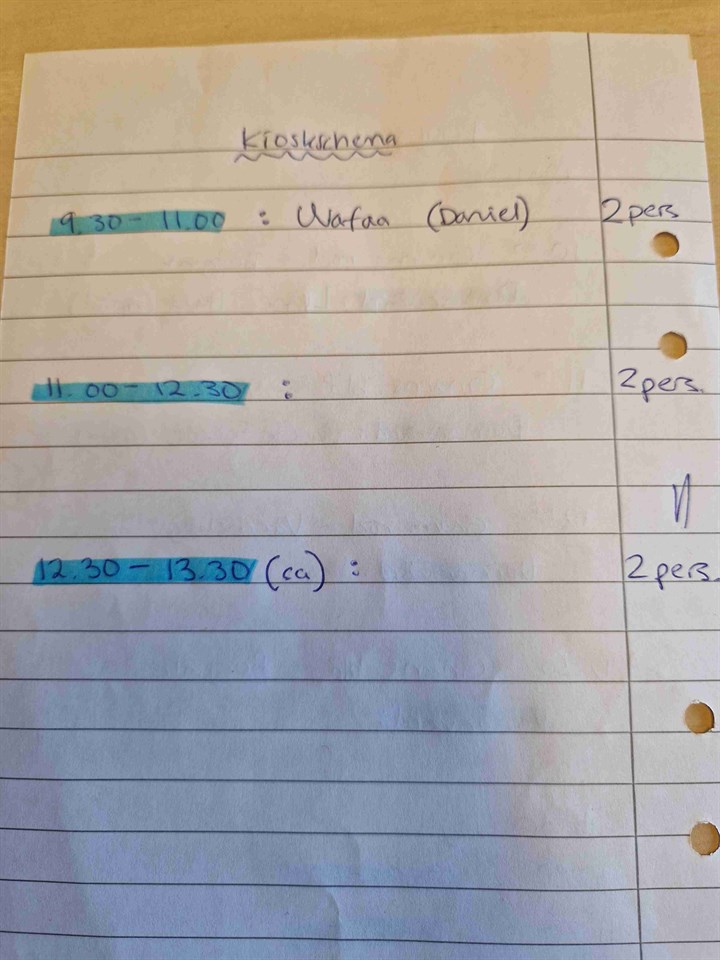 Kioskschema
9.30 - 11.00 : Wafaa (Daniel) 2 pers
11.00 - 12.30 : 2 pers.
12.30 - 13.30 (ca) : 2 pers.